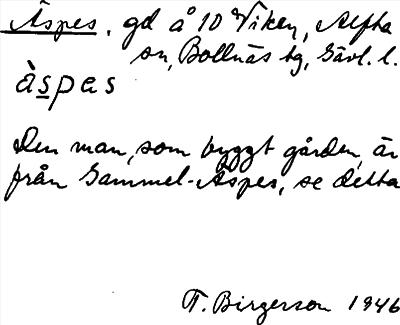 Äspes. gd å 10 Viken, Alfta
sn, Bollnäs tg, Gävl. l.
ä̀spes
Den man, som byggt gården, är
från Gammel-Äspes, se detta
T. Birgerson 1946